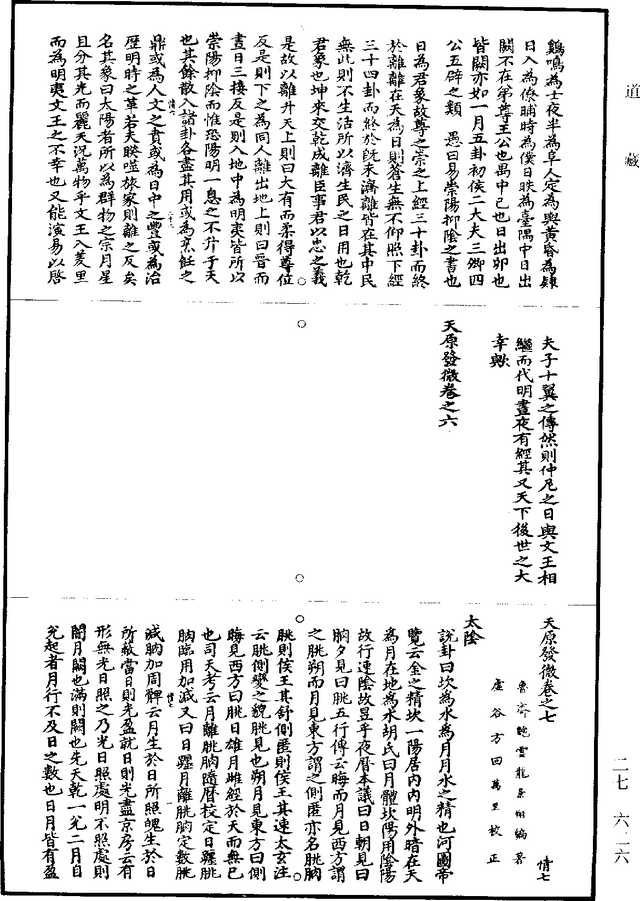 道藏
鷄鳴為士夜半為皁人定為輿黃昏為隸
日入為僚晡時為僕日昳為臺隅中日出
闕不在第尊王公也禺中巳也日出卯也
皆闕亦如一月五卦初侯二大夫三卿四
公五辟之類　愚曰易崇陽抑陰之書也
日為君象故尊之崇之上經三十卦而終
於離離在天為日則蒼生無不仰照下經
三十四卦而終於旣未濟離皆在其中民
無此則不生活所以濟生民之日用也乾
君象也坤來交乾成離臣事君以忠之義
是故以離升天上則曰大有而柔得尊位
反是則下之為同人離出地上則曰晉而
晝日三接反是則入地中為明夷皆所以
崇陽抑陰而惟恐陽明一息之不升于天
也其餘散入諸卦各盡其用或為烹飪之
鼎或為人文之賁或為日中之豐或為治
曆明時之革若夫睽噬旅家則離之反矣
名其象曰太陽者所以為群物之宗月星
且分其光而麗天況萬物乎文王入羑里
而為明夷文王之不幸也又能演易以啓
夫子十翼之傳然則仲尼之日與文王相
繼而代明晝夜有經其又天下後世之大
幸歟
天原發微卷之六
天原發微卷之七　情七
魯齋鮑雲龍景翔編著
虛谷方回萬里校正
太陰
說卦曰坎為水為月月水之精也河圖帝
覽云金之精坎一陽居內內明外暗在天
為月在地為水胡氏曰月體坎陽用陰陽
故行連陰故昱乎夜曆本議曰日朝見曰
朒夕見曰朓五行傳云晦而月見西方謂
之朓朔而月見東方謂之側匿亦名朓朒
朓則侯王其舒側匿則侯王其速太玄注
云朓側變之貌朓見也朔月見東方曰側
晦見西方曰朓日雄月雌經於天而無已
也司天考云月離朓朒隨曆校定日躔朓
朒臨用加減又曰日躔月離朓朒定數朓
減朒加周髀云月生於日所照魄生於日
所蔽當日則光盈就日則光盡京房云有
形無光日照之乃光日照處明不照處則
闇月闕也滿則闕也先天乾一兌二月自
兌起者月行不及日之數也日月皆有盈
二七　六・一六